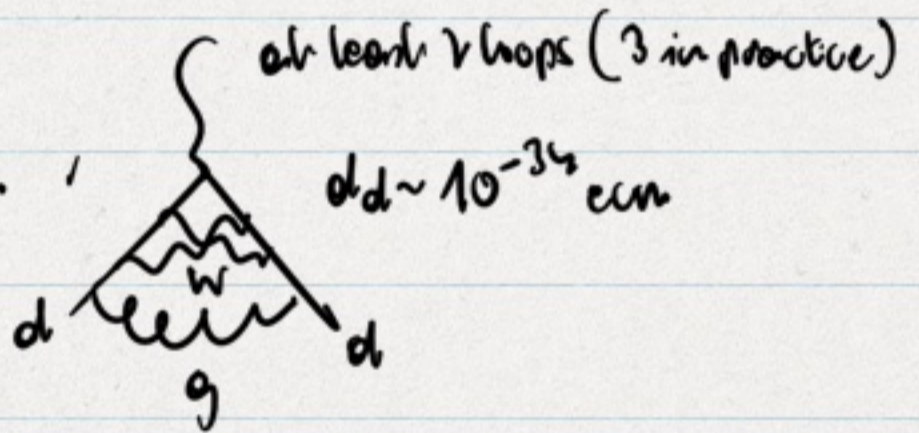 at least 2 loops (3 in practice)
d_d ~ 10^{-34} ecm
W
d d
g